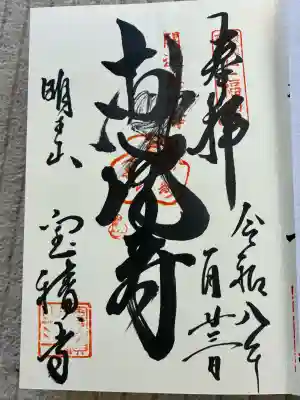 奉拝
令和八年
一月廿三日
恵比寿
明王山
宝積寺